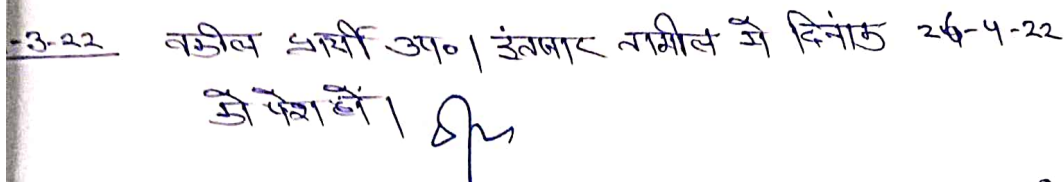 -3-22 वकील प्रार्थी उप०। इंतजार तामील में दिनांक 26-4-22
को पेश हों।